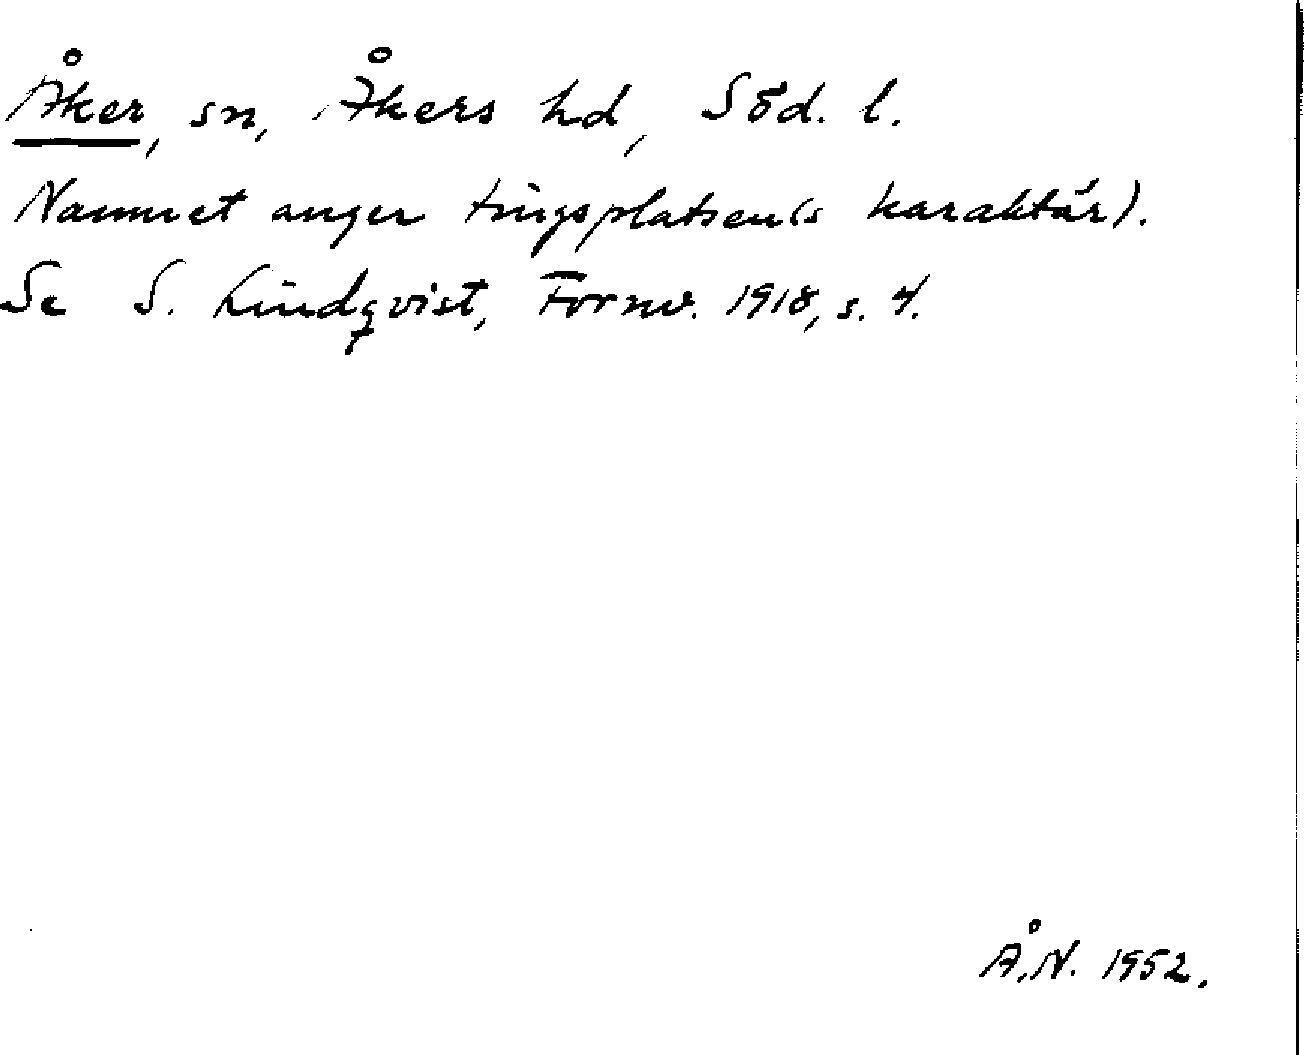 Åker, sn, Åkers hd, Söd. l.
Namnet anger tingsplatsen(s karaktär).
Se S. Lindqvist, Fornv. 1918, s. 4.
Å.N. 1952.